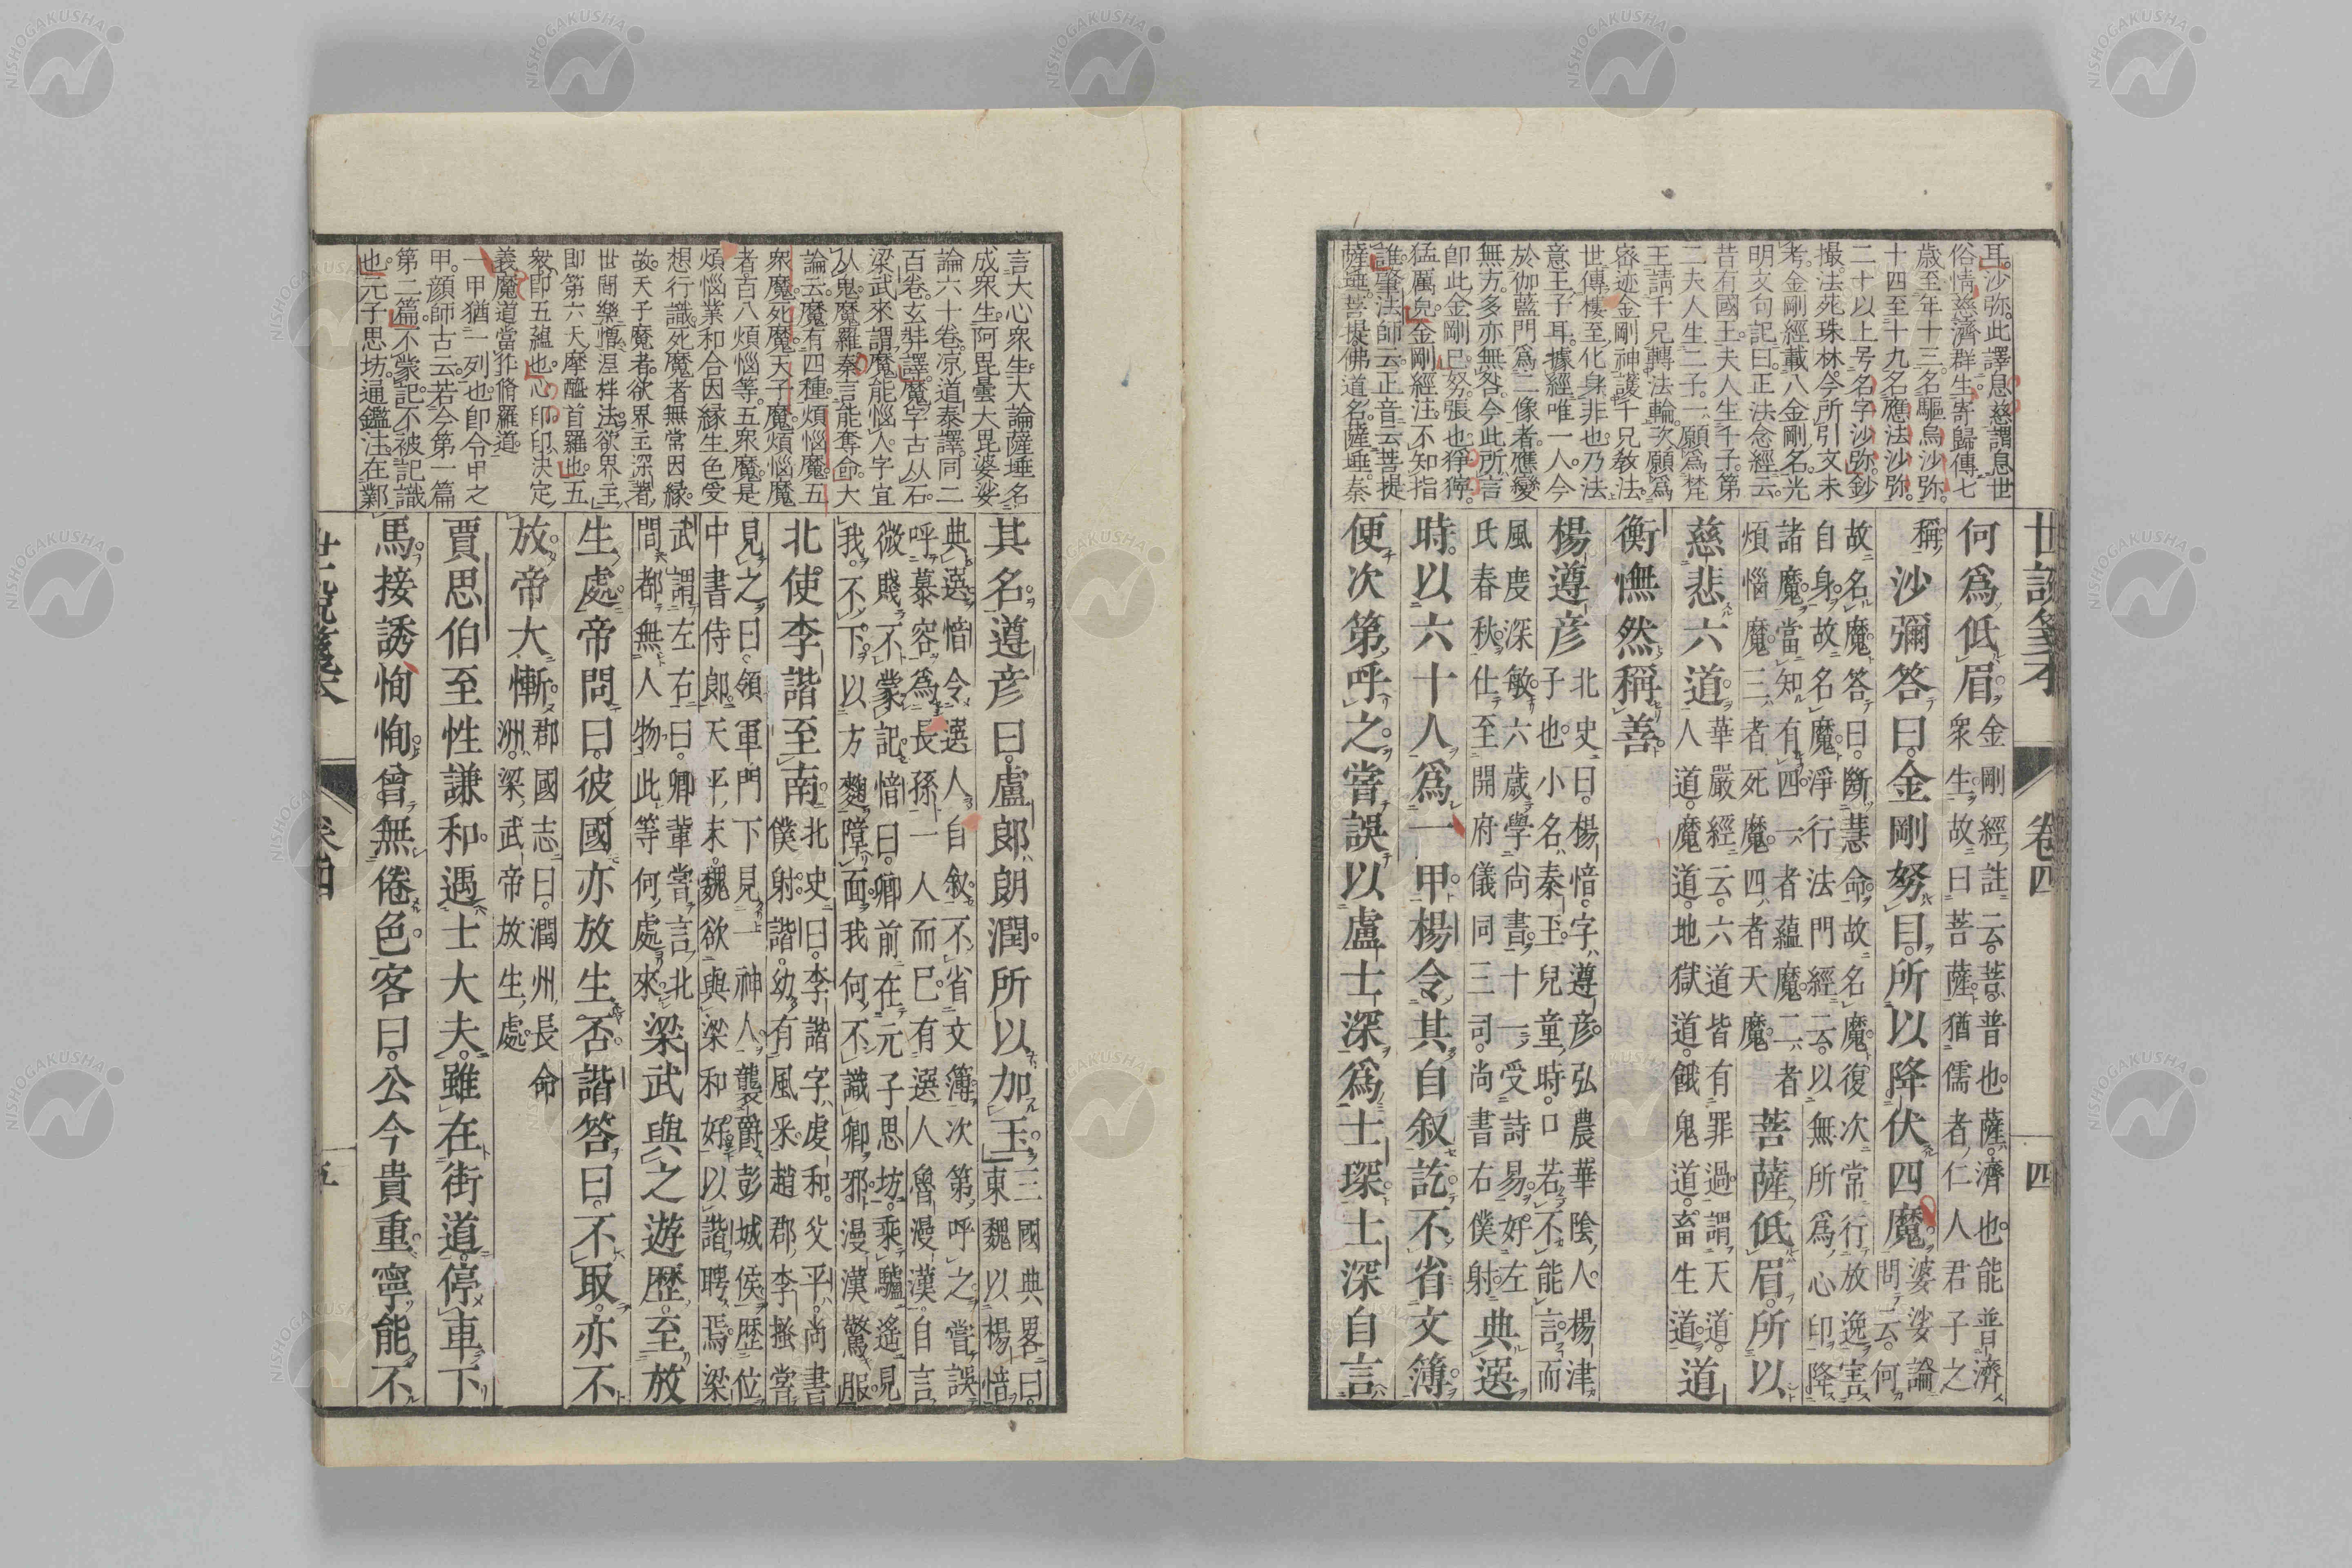 耳。沙弥。此譯息慈。謂息世
俗情。慈濟群生。寄歸傳七
歳至年十三。名驅烏沙弥。
十四至十九。名應法沙弥。
二十以上。号名字沙弥。鈔
撮。法苑珠林。今所引文未
考。金剛經載八金剛名。光
明文句記曰。正法念經云。
昔有國王。夫人生千子。第
二夫人生二子。一願爲梵
王請千兄轉法輪。次願爲
密迹金剛神護千兄教法。
世傳樓至化身非也。乃法
意王子耳。據經唯一人。今
於伽藍門爲二像者。應變
無方。多亦無咎。今此所言
卽此金剛已。努。張也。猙獰。
猛厲皃。金剛經注。不知指
誰。肇法師云。正音云菩提
薩埵。菩提佛道名。薩埵。秦
世說箋本 卷四 四
何爲低眉
金剛經註云。菩普也。薩濟也。能普濟
衆生。故曰菩薩。猶儒者仁人君子之
稱
沙彌答曰。金剛努目。所以降伏四魔
婆娑論
問云。何
故名魔。答曰。斷慧命。故名魔。復次常行放逸害
自身。故名魔。淨行法門經云。以無所爲心印降
諸魔。當知有四。一者蘊魔。二者
煩惱魔。三者死魔。四者天魔。
菩薩低眉。所以
慈悲六道
華嚴經云。六道皆有罪過。謂天道。
人道。魔道。地獄道。餓鬼道。畜生道。
道
衡憮然稱善
楊遵彦
北史曰。楊愔。字遵彦。弘農華陰人。楊津
子也。小名秦王。兒童時。口若不能言。而
風度深敏。六歳學尚書。十一受詩易。好左
氏春秋。仕至開府儀同三司。尚書右僕射。
典選
時。以六十人爲一甲。楊令其自叙訖。不省文簿。
便次第呼之。嘗誤以盧士深爲士琛。士深自言
言大心衆生。大論薩埵名
成衆生。阿毘曇大毘婆娑
論六十卷。凉道泰譯。同二
百卷。玄奘譯。魔字古从石。
梁武來謂。魔能惱人。字宜
从鬼。魔羅秦言能奪命。大
論云。魔有四種。煩惱魔。五
衆魔。死魔。天子魔。煩惱魔
者。百八煩惱等。五衆魔。是
煩惱業和合因緣生色受
想行識。死魔者。無常因緣。
故。天子魔者。欲界主。深著
世間樂。憎涅槃法。欲界主
即第六天摩醯首羅也。五
衆。即五蘊也。心印。印。決定
義。魔道當作脩羅道。
一甲猶一列也。卽令甲之
甲。顔師古云。若今第一篇
第二篇。不蒙記。不被記識
也。元子思坊。通鑑注。在鄴
其名。遵彦曰。盧郞朗潤。所以加玉
三國典畧曰。
東魏以楊愔
典選。愔令選人自叙。不省文簿。次第呼之。嘗誤
呼慕容爲長孫。一人而已。有選人魯漫漢。自言
微賤不蒙記。愔曰。卿前在元子思坊。乘驢遙見
我。不下。以方麴障面。我何不識卿邪。漫漢驚服
北使李諧至南。
北史曰。李諧字虔和。父平。尚書
僕射。諧幼有風采。趙郡李搔嘗
見之曰。領軍門下見一神人。襲爵彭城侯。歴位
中書侍郞。天平末。魏欲與梁和好。以諧聘焉。梁
武謂左右曰。卿輩嘗言北
間都無人物。此等何處來。
梁武與之遊歴。至放
生處。帝問曰。彼國亦放生否。諧答曰。不取。亦不
放。帝大慚。
郡國志曰。潤州長命
洲。梁武帝放生處。
賈思伯至性謙和。遇士大夫。雖在街道。停車下
馬。接誘恂恂。曾無倦色。客曰。公今貴重。寧能不
世說箋本 卷四 五